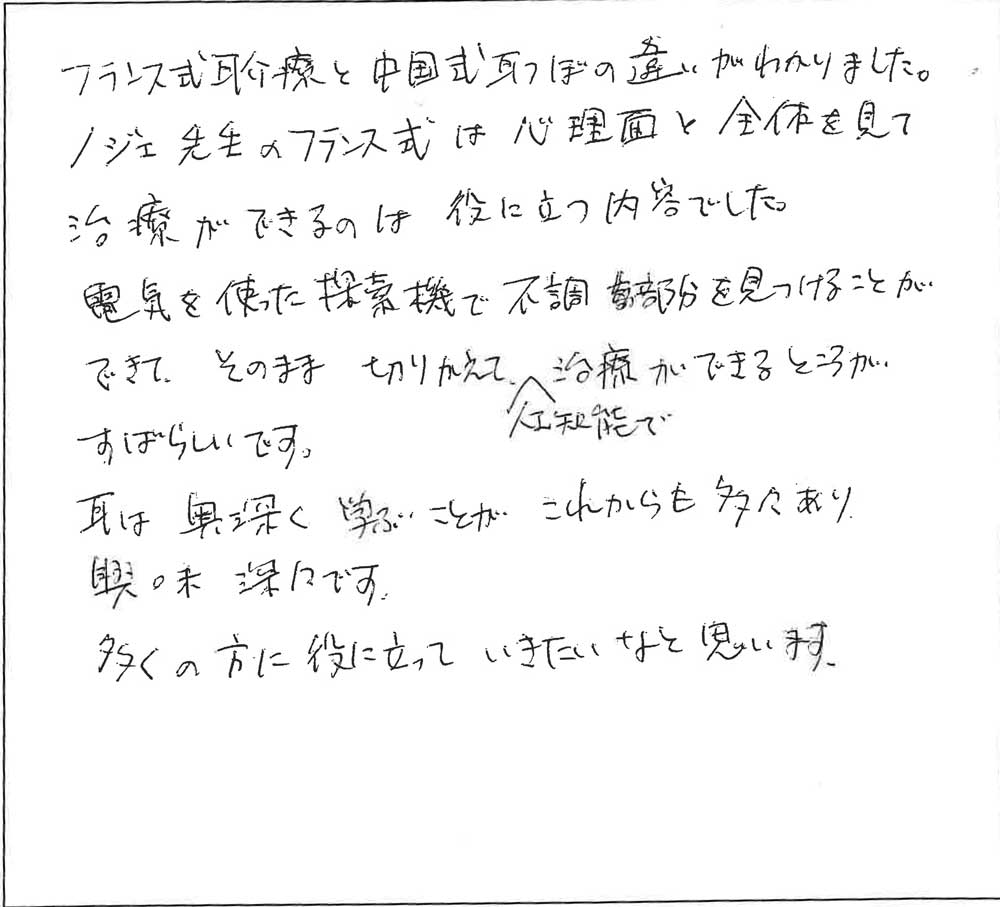 フランス式耳介療と中国式耳つぼの違いがわかりました。
ノジェ先生のフランス式は心理面と全体を見て
治療ができるのは役に立つ内容でした。
電気を使った探索機で不調部分を見つけることが
できて、そのまま切りかえて、人工知能で治療ができるところが
すばらしいです。
耳は奥深く学ぶことがこれからも多々あり
興味深々です。
多くの方に役に立っていきたいなと思います。